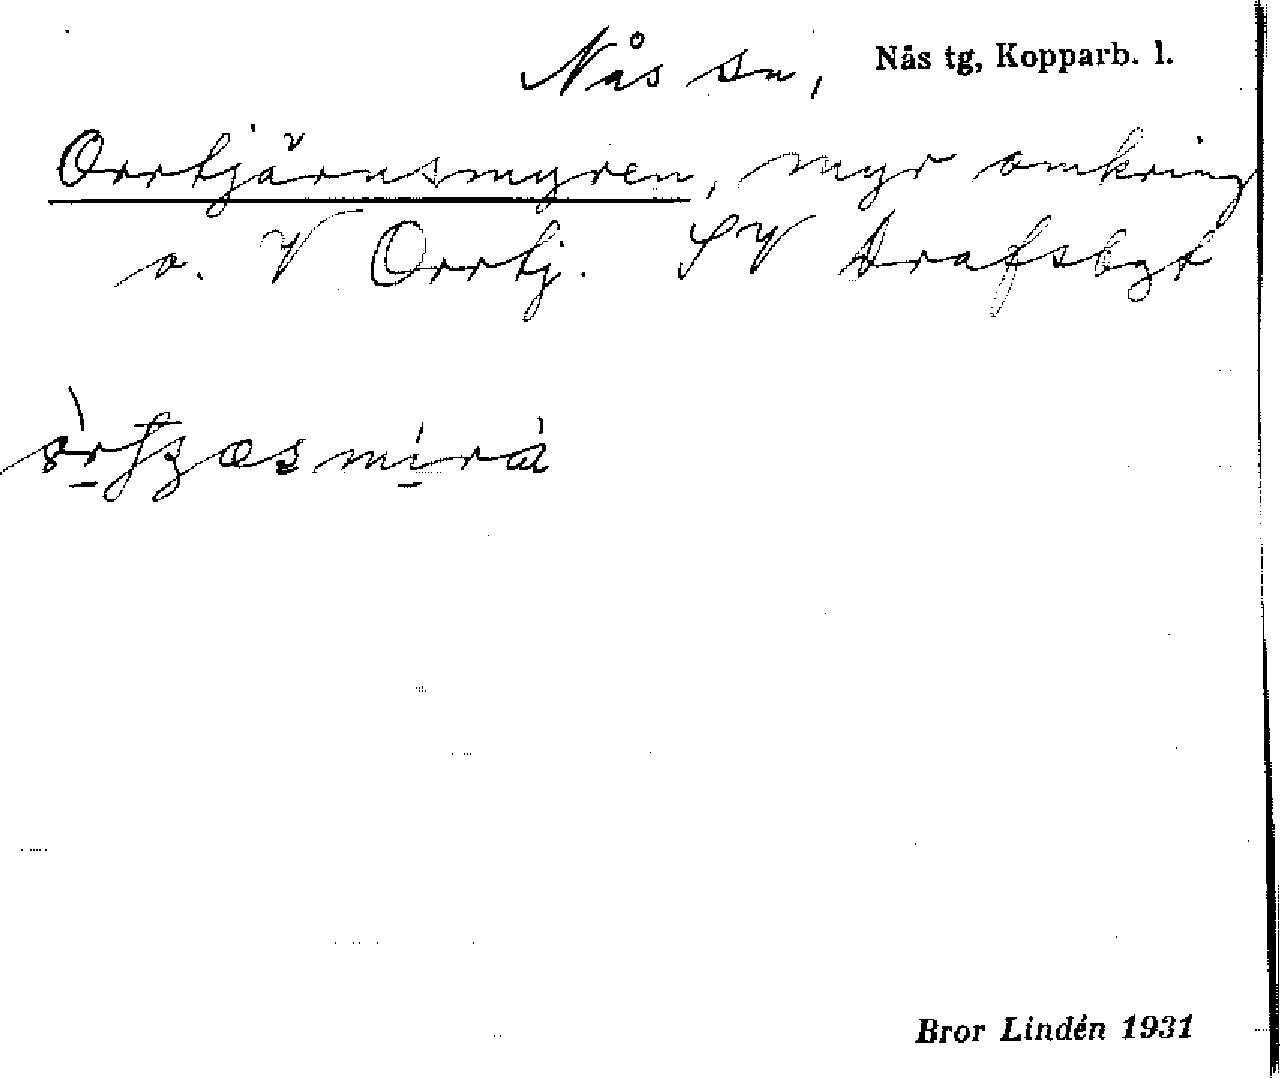 Nås sn, Nås tg, Kopparb. l.
Orrtjärnsmyren, myr omkring
o. V Orrtj. SV Drafsbgt
Bror Lindén 1931